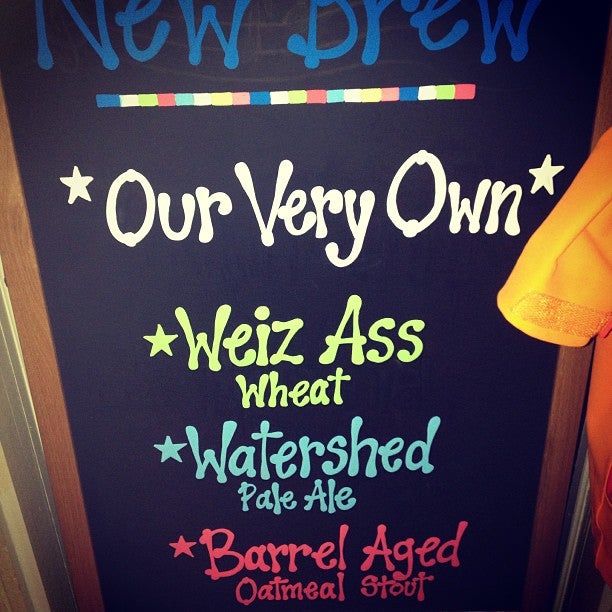 New Brew
Our Very Own
Weiz Ass
Wheat
Watershed
Pale Ale
Barrel Aged
Oatmeal Stout